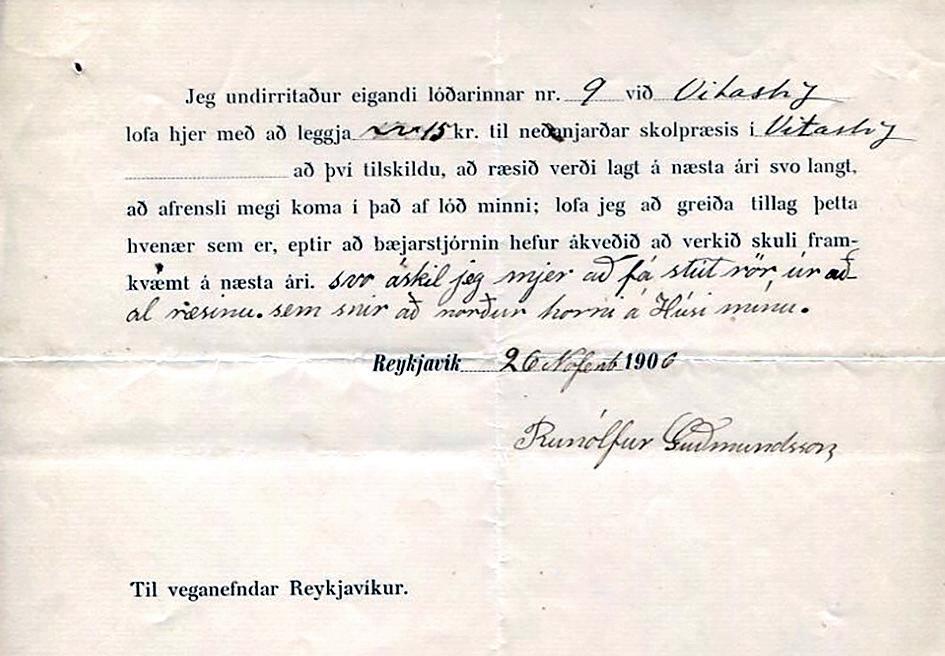 Jeg undirritaður eigandi lóðarinnar nr. 9 við Vitastíg
lofa hjer með að leggja 15 kr. til neðanjarðar skolpræsis í Vitastíg
að því tilskildu, að ræsið verði lagt á næsta ári svo langt,
að afrensli megi koma í það af lóð minni; lofa jeg að greiða tillag þetta
hvenær sem er, eptir að bæjarstjórnin hefur ákveðið að verkið skuli fram-
kvæmt á næsta ári. svo áskil jeg mjer að fá stút rör úr að
al ræsinu. sem snir að norður horni á Húsi mínu.
Reykjavík 26 Nofemb 1906
Runólfur Guðmundsson
Til veganefndar Reykjavíkur.